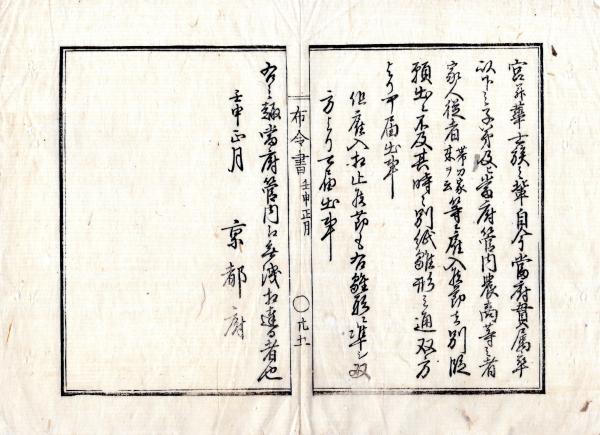 宮并華士族之輩自今當府貫属卒
以下之子弟及當府管内農商等之者
家人從者帯刀家来ヲ云等ニ雇入候節者別段
願出ニ不及其時々別紙雛形之通双方
より可届出事
但雇入相止候節も右雛形ニ準シ双
方より可届出事
布令書 壬申正月 〇
右之趣當府管内江無洩相達者也
壬申正月 京都府